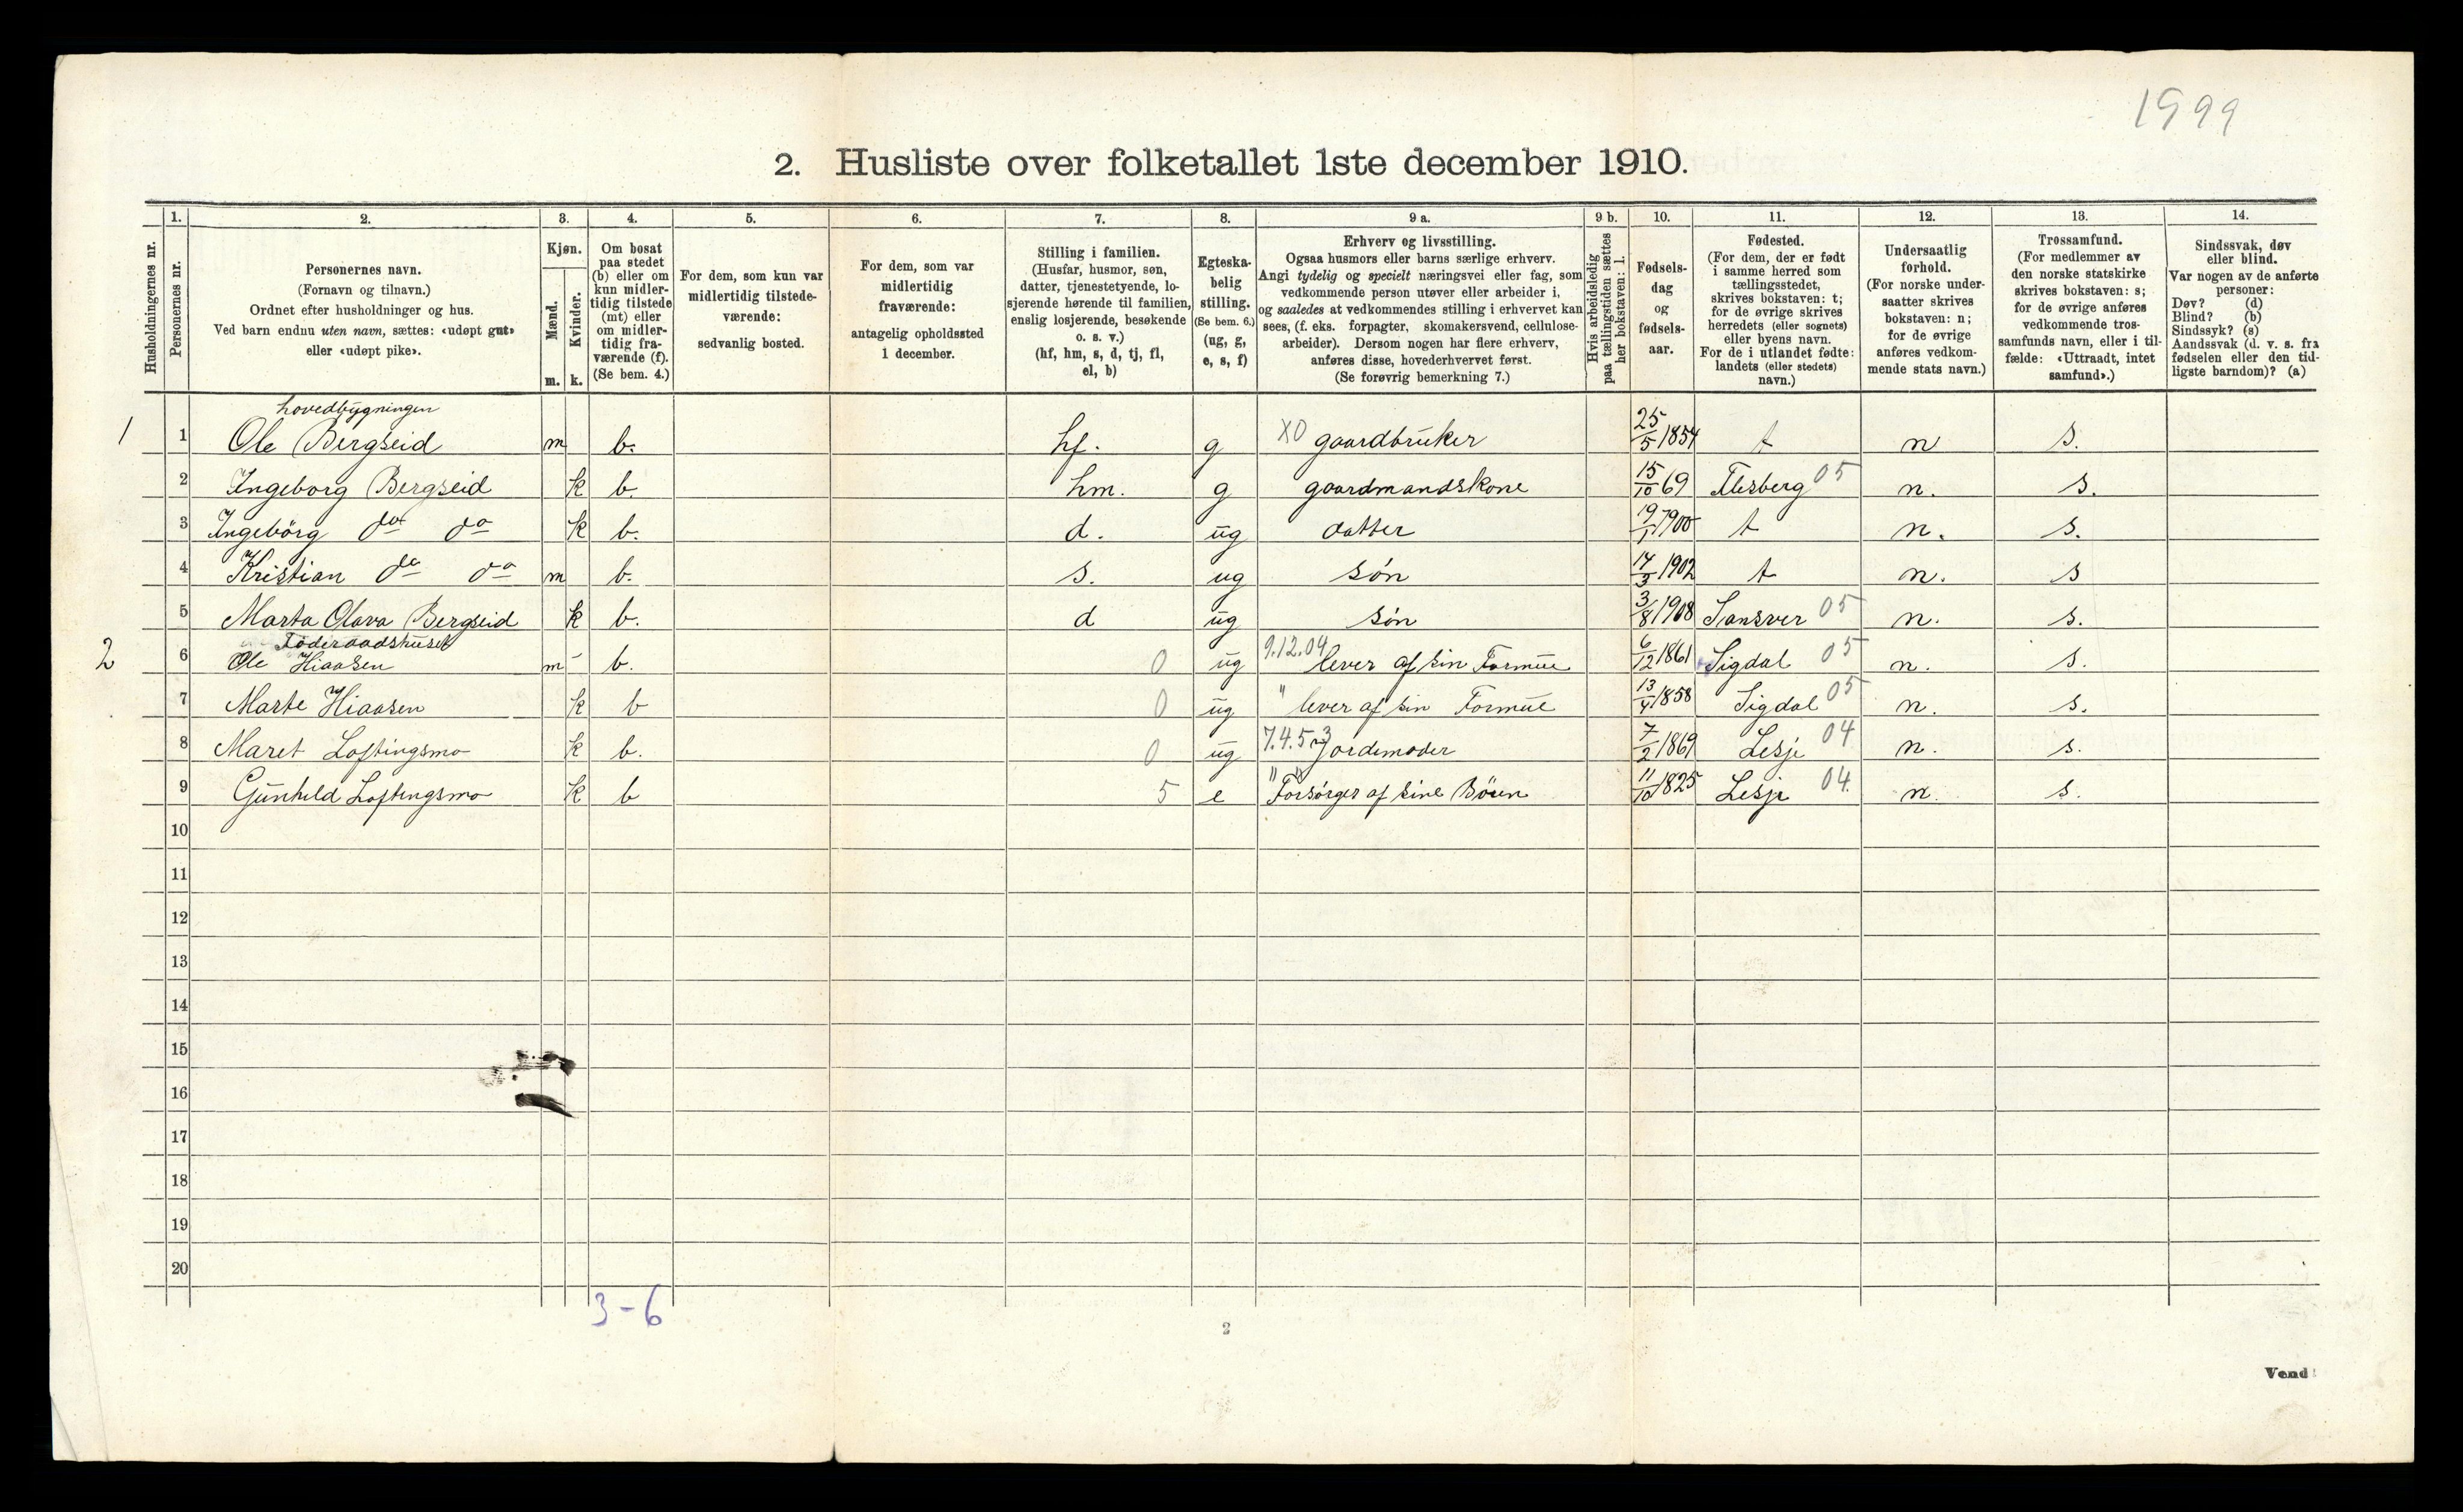 1999
2. Husliste over folketallet 1ste december 1910.
Husholdningernes nr.
1. Personernes nr.
2. Personernes navn.
(Fornavn og tilnavn.)
Ordnet efter husholdninger og hus.
Ved barn endnu uten navn, sættes: «udøpt gut»
eller «udøpt pike».
3. Kjøn.
Mænd. m.
Kvinder. k.
4. Om bosat
paa stedet
(b) eller om
kun midler-
tidig tilstede
(mt) eller
om midler-
tidig fra-
værende (f).
(Se bem. 4.)
5. For dem, som kun var
midlertidig tilstede-
værende:
sedvanlig bosted.
6. For dem, som var
midlertidig
fraværende:
antagelig opholdssted
1 december.
7. Stilling i familien.
(Husfar, husmor, søn,
datter, tjenestetyende, lo-
sjerende hørende til familien,
enslig losjerende, besøkende
o. s. v.)
(hf, hm, s, d, tj, fl,
el, b)
8. Egteska-
belig
stilling.
(Se bem. 6.)
(ug, g,
e, s, f)
9 a. Erhverv og livsstilling.
Ogsaa husmors eller barns særlige erhverv.
Angi tydelig og specielt næringsvei eller fag, som
vedkommende person utøver eller arbeider i,
og saaledes at vedkommendes stilling i erhvervet kan
sees, (f. eks. forpagter, skomakersvend, cellulose-
arbeider). Dersom nogen har flere erhverv,
anføres disse, hovederhvervet først.
(Se forøvrig bemerkning 7.)
9 b. Hvis arbeidsledig
paa tællingstiden sættes
her bokstaven: l.
10. Fødsels-
dag
og
fødsels-
aar.
11. Fødested.
(For dem, der er født
i samme herred som
tællingsstedet,
skrives bokstaven: t;
for de øvrige skrives
herredets (eller sognets)
eller byens navn.
For de i utlandet fødte:
landets (eller stedets)
navn.)
12. Undersaatlig
forhold.
(For norske under-
saatter skrives
bokstaven: n;
for de øvrige
anføres vedkom-
mende stats navn.)
13. Trossamfund.
(For medlemmer av
den norske statskirke
skrives bokstaven: s;
for de øvrige anføres
vedkommende tros-
samfunds navn, eller i til-
fælde: «Uttraadt, intet
samfund».)
14. Sindssvak, døv
eller blind.
Var nogen av de anførte
personer:
Døv? (d)
Blind? (b)
Sindssyk? (s)
Aandssvak (d. v. s. fra
fødselen eller den tid-
ligste barndom)? (a)
hovedbygningen
1 1 Ole Bergseid m b. hf. g X0 gaardbruker 25/5 1854 t n s.
2 Ingeborg Bergseid k b. hm. g gaardmandskone 15/10 69 Flesberg 05 n. s.
3 Ingebörg do do k b. d. ug datter 19/1 1900 t n. s.
4 Kristian do do m b. s. ug søn 14/3 1902 t n. s
5 Marta Olava Bergseid k b. d ug søn 3/8 1908 Sansver 05 n. s.
Föderaadshuset
2 6 Ole Hiaasen m b. 0 ug 9.12.04 lever af sin Formue 6/12 1861 Sigdal 05 n. s.
7 Marte Hiaasen k b 0 ug " lever af sin Formue 13/4 1858 Sigdal 05 n. s.
8 Maret Loftingsmo k b. 0 ug 7.4.5 3 Jordemoder 7/2 1869 Lesje 04 n. s.
9 Gunhild Loftingsmo k b 5 e " " Forsörges af sine Börn 11/10 1825 Lesje 04. n. s.
10
11
12
13
14
15
16
17
18
19
20
3-6
2
Vend